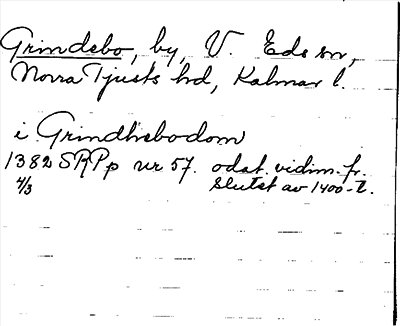 Grindsbo, by, V. Eds sn,
Norra Tjusts hd, Kalmar l.
i Grindhsbodom
1382 SRPp nr 57. odat. vidim. fr.
4/3 slutet av 1400-t.